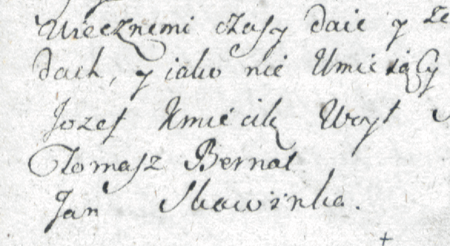 Wiecznemi czasy daie y ze
dach, y iako nie Umieiący
Jozef Kmiecik Woyt
Tomasz Bernat
Jan Skowinka.